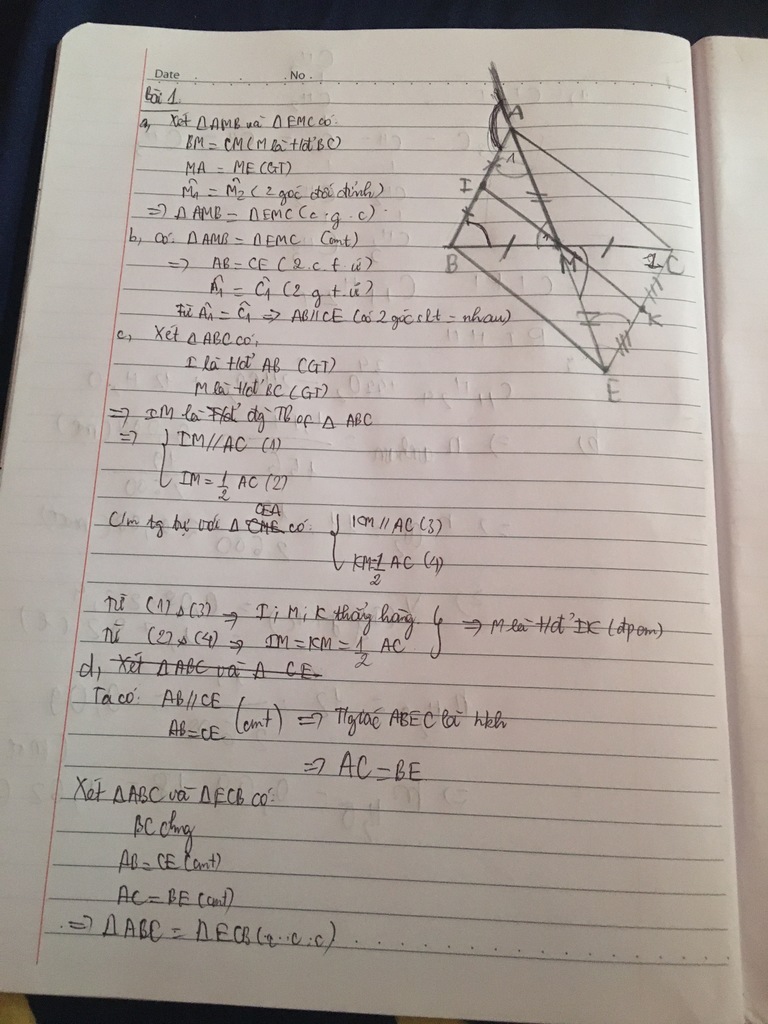 Date No
Bài 1.
a, Xét ΔAMB và ΔEMC có:
BM = CM (M là tđ' BC)
MA = ME (GT)
M̂1 = M̂2 (2 góc đối đỉnh)
=> ΔAMB = ΔEMC (c.g.c)
b, có: ΔAMB = ΔEMC (cmt)
=> AB = CE (2.c.t.ứ)
Â1 = Ĉ1 (2 g.t.ứ)
Từ Â1 = Ĉ1 => AB // CE (có 2 góc slt = nhau)
c, Xét ΔABC có,
I là tđ' AB (GT)
M là tđ' BC (GT)
=> IM là đg Tb of Δ ABC
=> { IM // AC (1)
IM = 1/2 AC (2)
C/m tg tự với Δ CEA có: { KM // AC (3)
KM = 1/2 AC (4)
Từ (1) & (3) => I; M; K thẳng hàng } => M là tđ' IK (đpcm)
Từ (2) & (4) => IM = KM = 1/2 AC
d, Xét ΔABC và Δ CE
Ta có: AB // CE
AB = CE (cmt) => Tg giác ABEC là hbh
=> AC = BE
Xét ΔABC và ΔECB có:
BC chung
AB = CE (cmt)
AC = BE (cmt)
=> ΔABC = ΔECB (c.c.c)
A
1
I
B
M
C
K
E